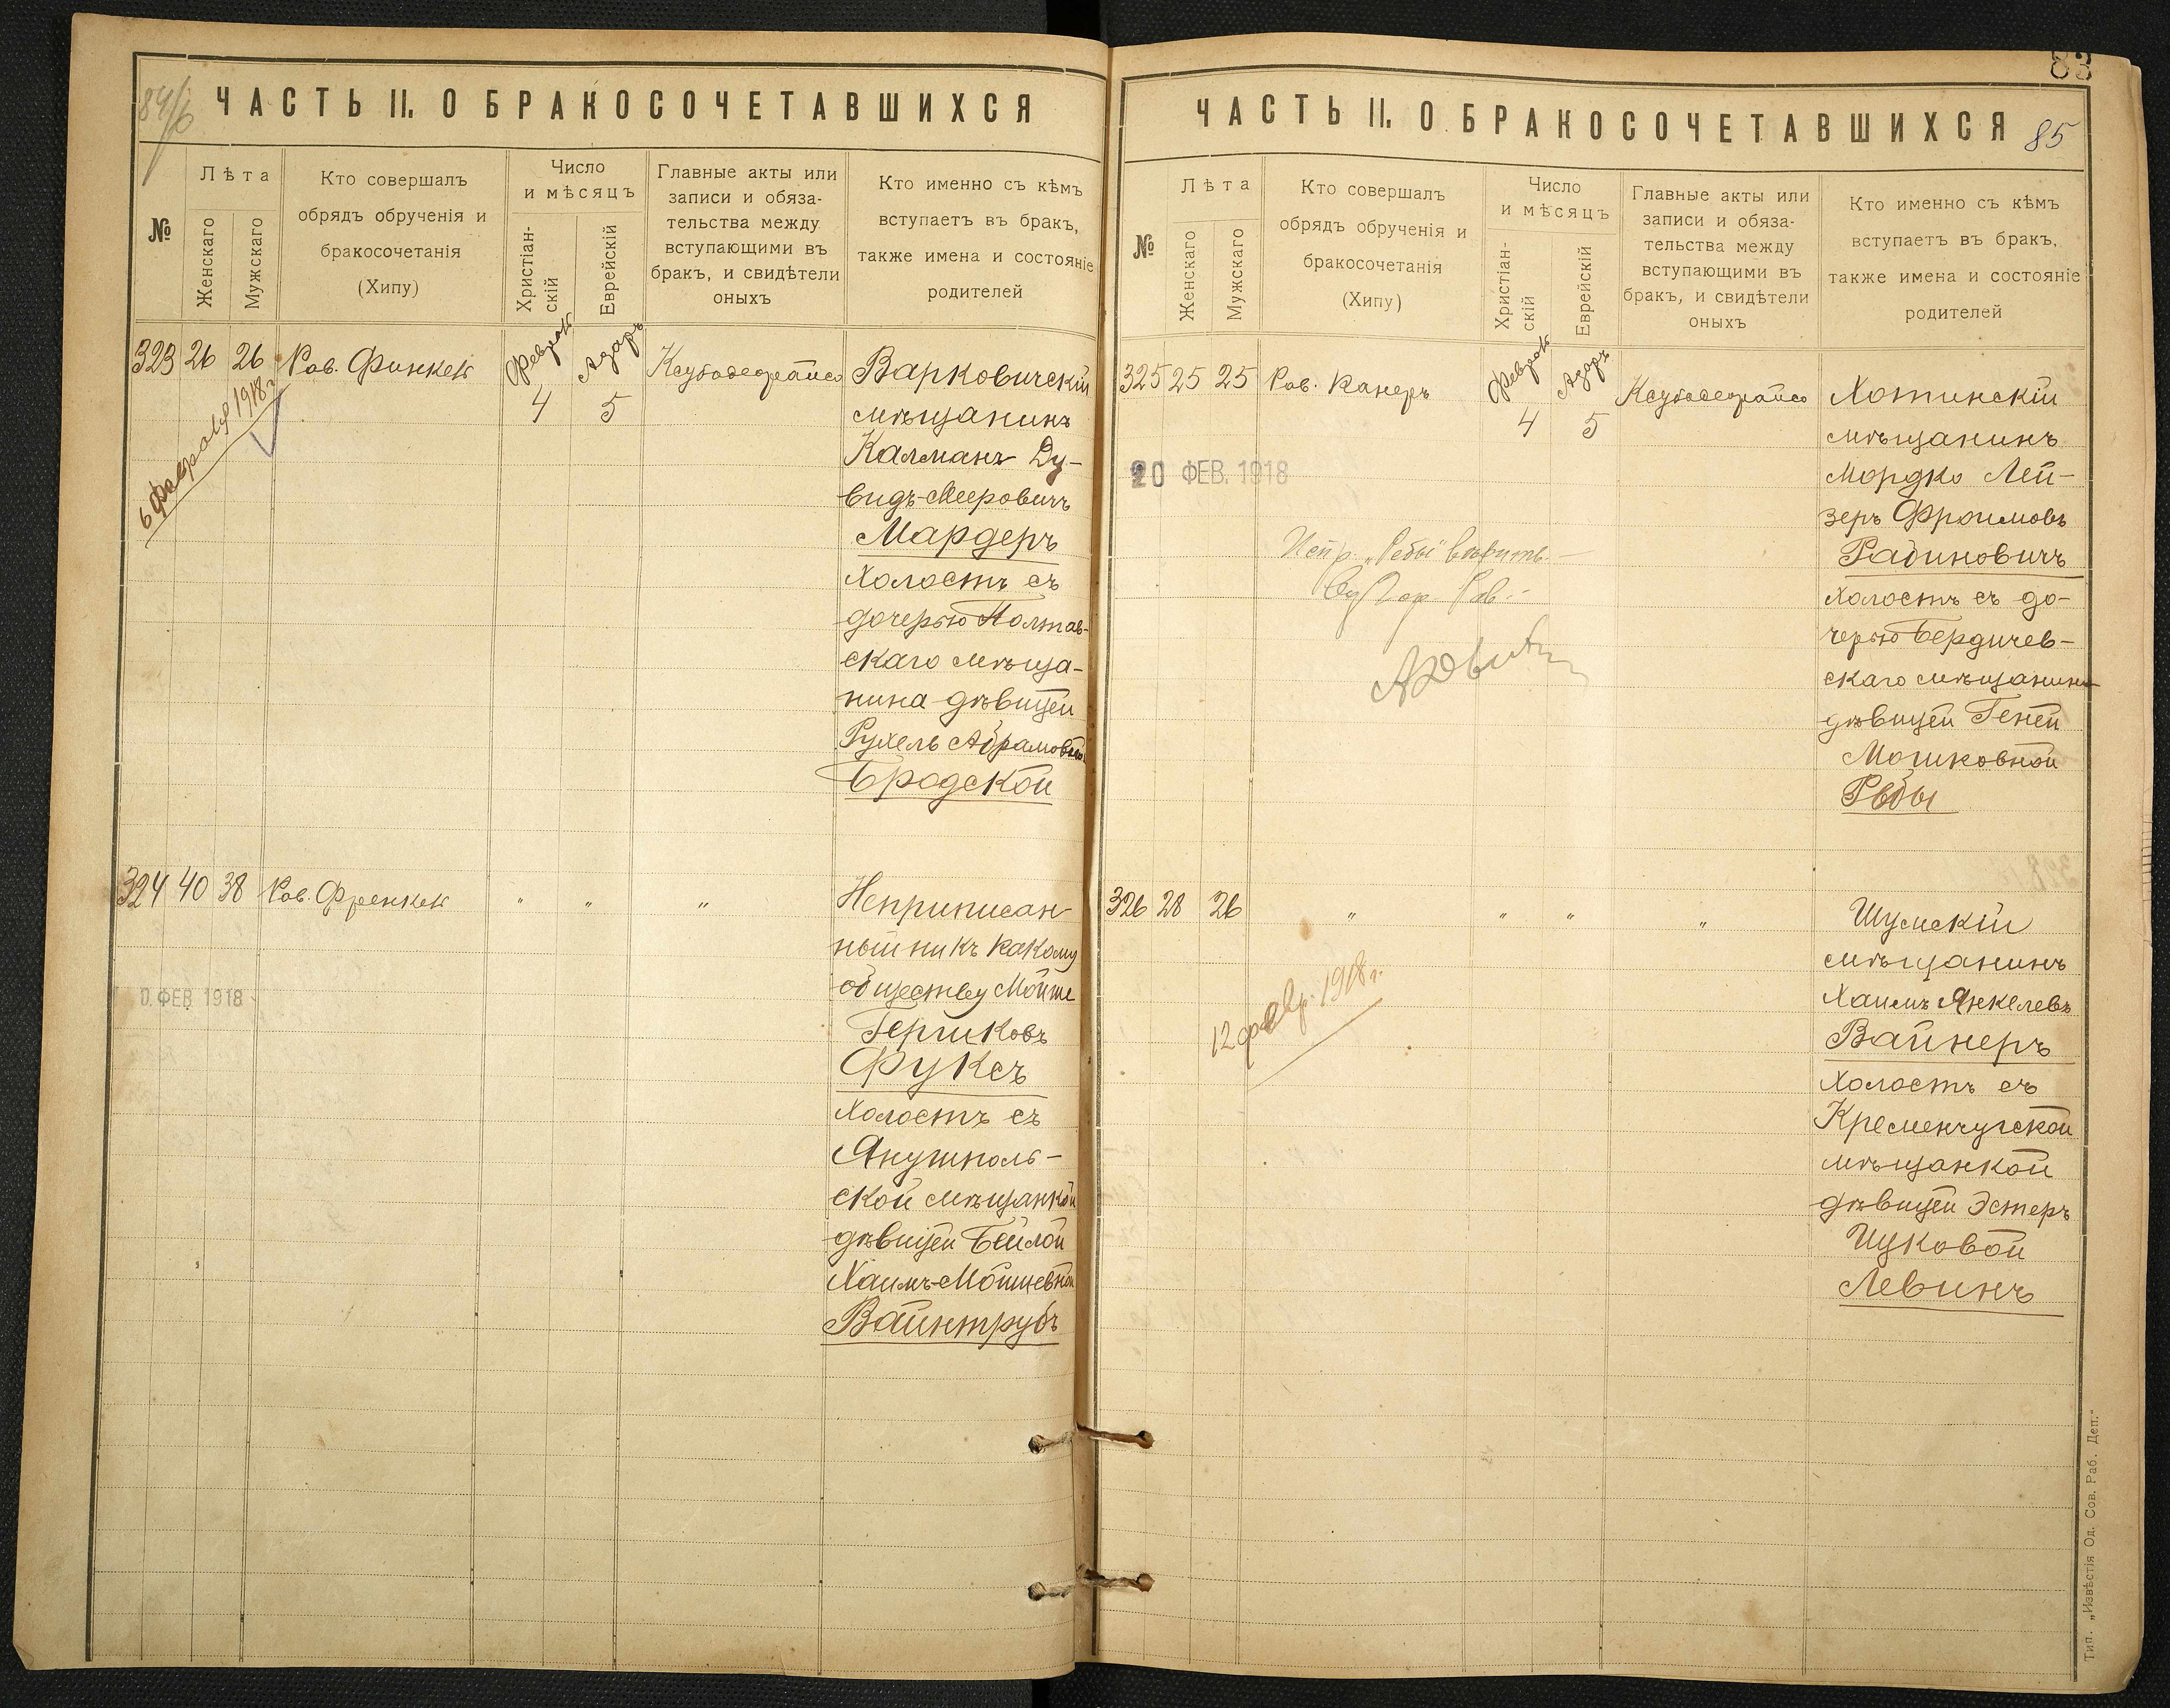 84/6
ЧАСТЬ II. О БРАКОСОЧЕТАВШИХСЯ
№
Лѣта
Женскаго
Мужскаго
Кто совершалъ
обрядъ обрученія и
бракосочетанія
(Хипу)
Число
и мѣсяцъ
Христіан-
скій
Еврейскій
Главные акты или
записи и обяза-
тельства между
вступающими въ
бракъ, и свидѣтели
оныхъ
Кто именно съ кѣмъ
вступаетъ въ бракъ,
также имена и состояніе
родителей
323 26 26 Рав. Финкель
Февраль 4
Адаръ 5
6 февраля 1918 г.
Варковичскій
мѣщанинъ
Калманъ Ду-
видъ-Мееровичъ
Мардеръ
холостъ съ
дочерью Полтав-
скаго мѣща-
нина дѣвицей
Рухель Абрамовной
Бродской
324 40 38 Рав. Френкель " " "
0. ФЕВ 1918
Неприписан-
ный ни къ какому
обществу Мойше
Гершковъ
Фуксъ
холостъ съ
Янушполь-
ской мѣщанкой
дѣвицей Бейлой
Хаимъ-Мошневной
Вайнтрубъ
83
ЧАСТЬ II. О БРАКОСОЧЕТАВШИХСЯ
85
№
Лѣта
Женскаго
Мужскаго
Кто совершалъ
обрядъ обрученія и
бракосочетанія
(Хипу)
Число
и мѣсяцъ
Христіан-
скій
Еврейскій
Главные акты или
записи и обяза-
тельства между
вступающими въ
бракъ, и свидѣтели
оныхъ
Кто именно съ кѣмъ
вступаетъ въ бракъ,
также имена и состояніе
родителей
325 25 25 Рав. Канеръ
Февраль 4
Адаръ 5
20 ФЕВ. 1918
Хотинскій
мѣщанинъ
Мордко Лей-
зеръ Фроимовъ
Рабиновичъ
холостъ съ до-
черью Бердичев-
скаго мѣщанина
дѣвицей Геней
Мошковной
Рѣбы
326 28 26 " " " "
12 февр. 1918 г.
Шумскій
мѣщанинъ
Хаимъ Янкелевъ
Вайнеръ
холостъ съ
Кременчугской
мѣщанкой
дѣвицей Эстеръ
Ицковой
Левинъ
Тип. „Извѣстія Од. Сов. Раб. Деп."